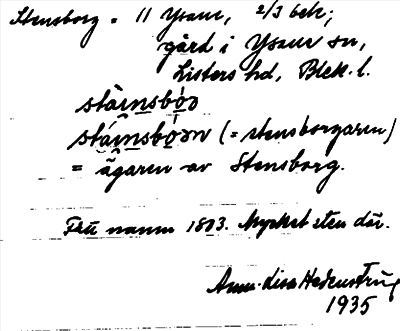 Stensborg = 11 Ysane, 2/3 beb;
gård i Ysane sn,
Listers hd, Blek. l.
stäinsbọ́ə
stäinsbọrn (= stensborgaren)
= ägaren av Stensborg.
Fru namn 1803. Mycket sten där.
Anna-Lisa Hedenstrug
1935